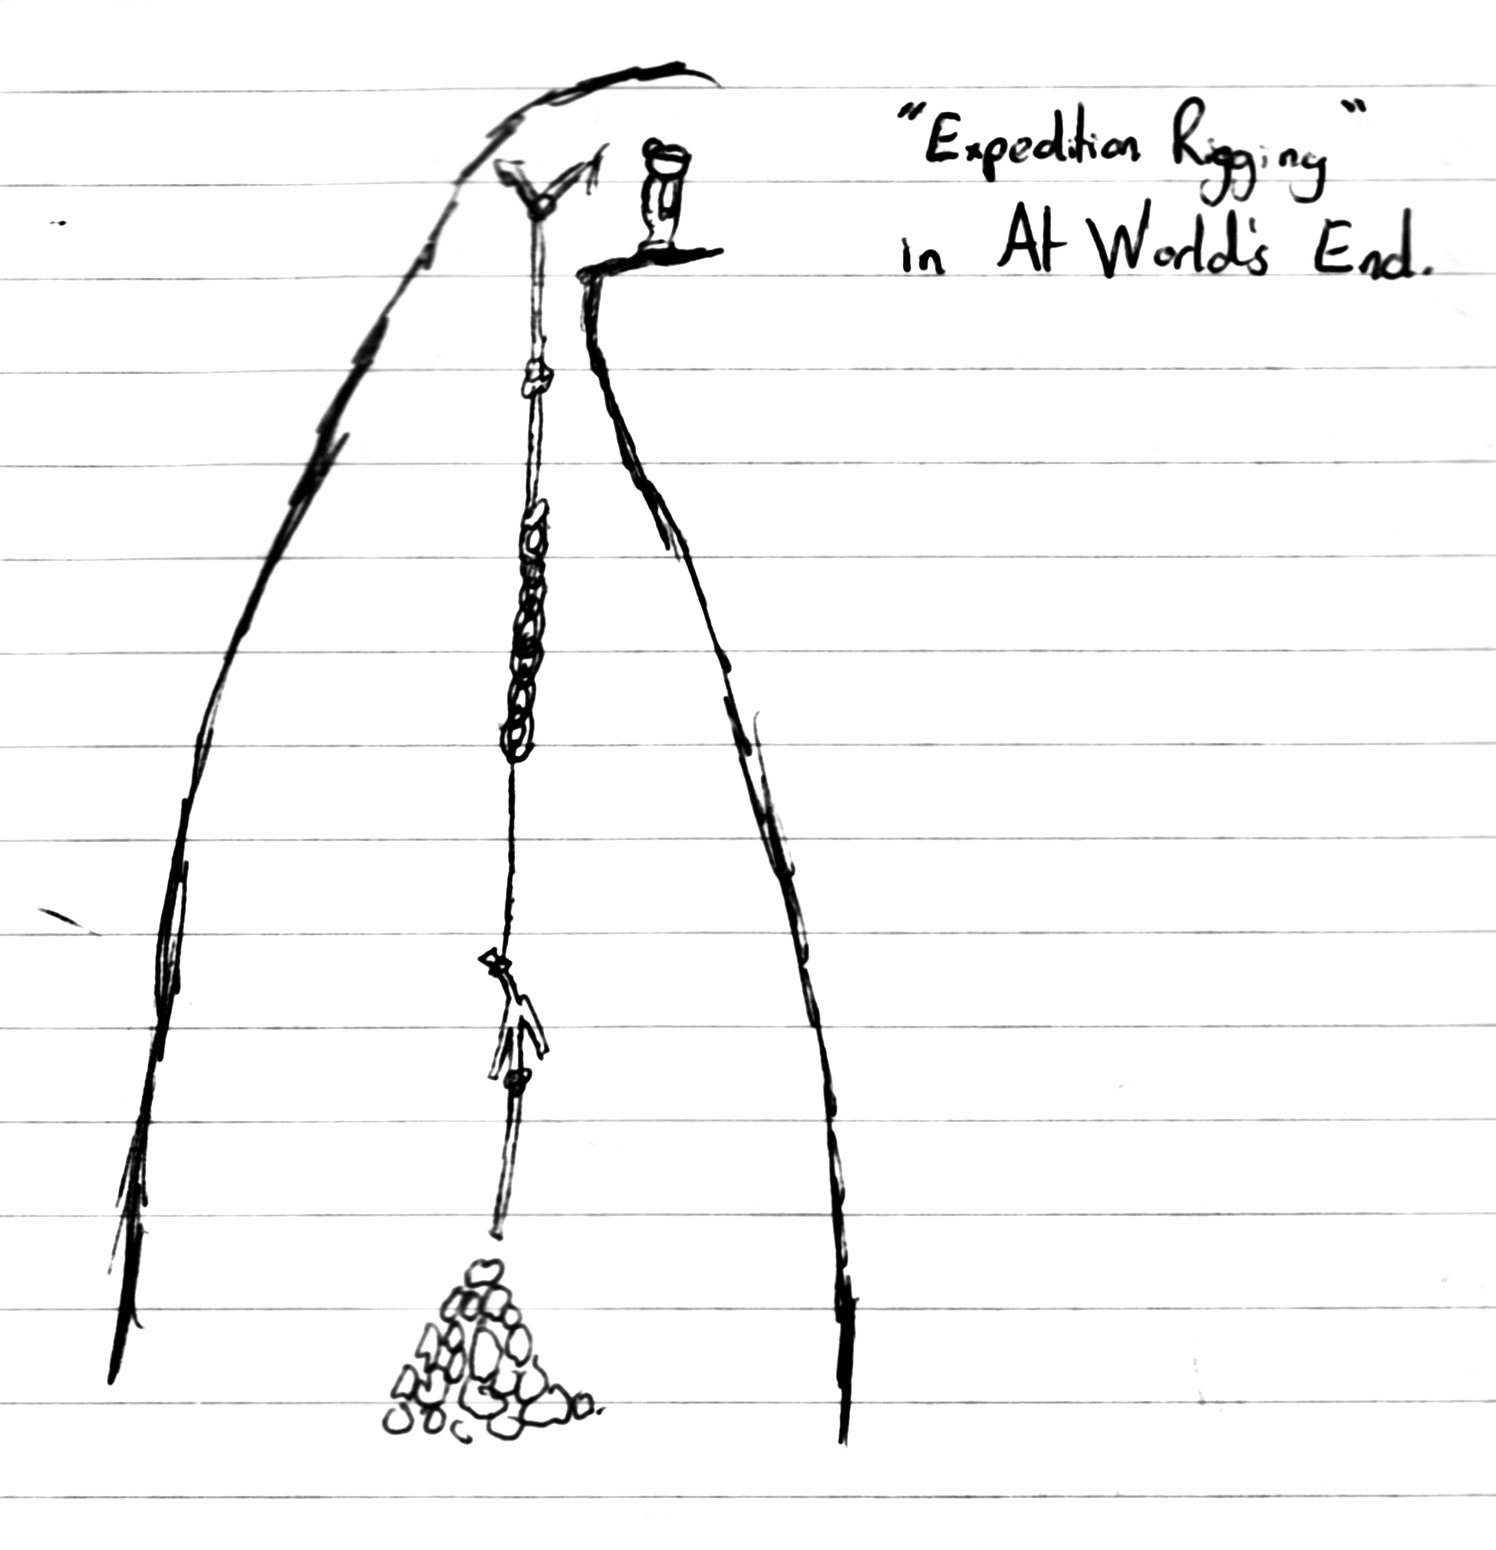 "Expedition Rigging"
in At World's End.